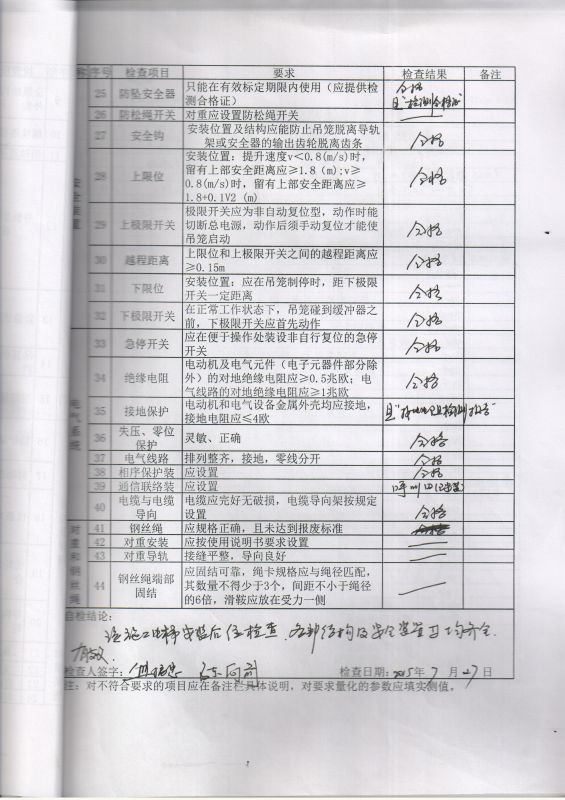 称 序号 检查项目 要求 检查结果 备注
25 防坠安全器 只能在有效标定期限内使用（应提供检 合格
测合格证） 且“检测合格证”
26 防松绳开关 对重应设置防松绳开关
27 安全钩 安装位置及结构应能防止吊笼脱离导轨
架或安全器的输出齿轮脱离齿条 合格
28 上限位 安装位置：提升速度v＜0.8(m/s)时，
留有上部安全距离应≥1.8（m);v≥
0.8(m/s)时，留有上部安全距离应≥ 合格
1.8+0.1V2 (m)
29 上极限开关 极限开关应为非自动复位型，动作时能
切断总电源，动作后须手动复位才能使 合格
吊笼启动
30 越程距离 上限位和上极限开关之间的越程距离应 合格
≥0.15m
31 下限位 安装位置：应在吊笼制停时，距下极限 合格
开关一定距离
32 下极限开关 在正常工作状态下，吊笼碰到缓冲器之 合格
前，下极限开关应首先动作
33 急停开关 应在便于操作处装设非自行复位的急停 合格
开关
34 绝缘电阻 电动机及电气元件（电子元器件部分除
外）的对地绝缘电阻应≥0.5兆欧；电 合格
气线路的对地绝缘电阻应≥1兆欧
35 接地保护 电动机和电气设备金属外壳均应接地，
接地电阻应≤4欧
36 失压、零位 灵敏、正确 合格
保护
37 电气线路 排列整齐，接地，零线分开 合格
38 相序保护装 应设置 合格
39 通信联络装 应设置
40 电缆与电缆 电缆应完好无破损，电缆导向架按规定 合格
导向 设置
41 钢丝绳 应规格正确，且未达到报废标准
42 对重安装 应按使用说明书要求设置
43 对重导轨 接缝平整，导向良好
44 钢丝绳端部 应固结可靠，绳卡规格应与绳径匹配，
固结 其数量不得少于3个，间距不小于绳径
的6倍，滑鞍应放在受力一侧
电气系统
自检结论：
该施工电梯安装后经检查，各部结构及安全装置均齐全
有效.
检查人签字： 检查日期：2015年 7 月 27 日
注：对不符合要求的项目应在备注栏具体说明，对要求量化的参数应填实测值。